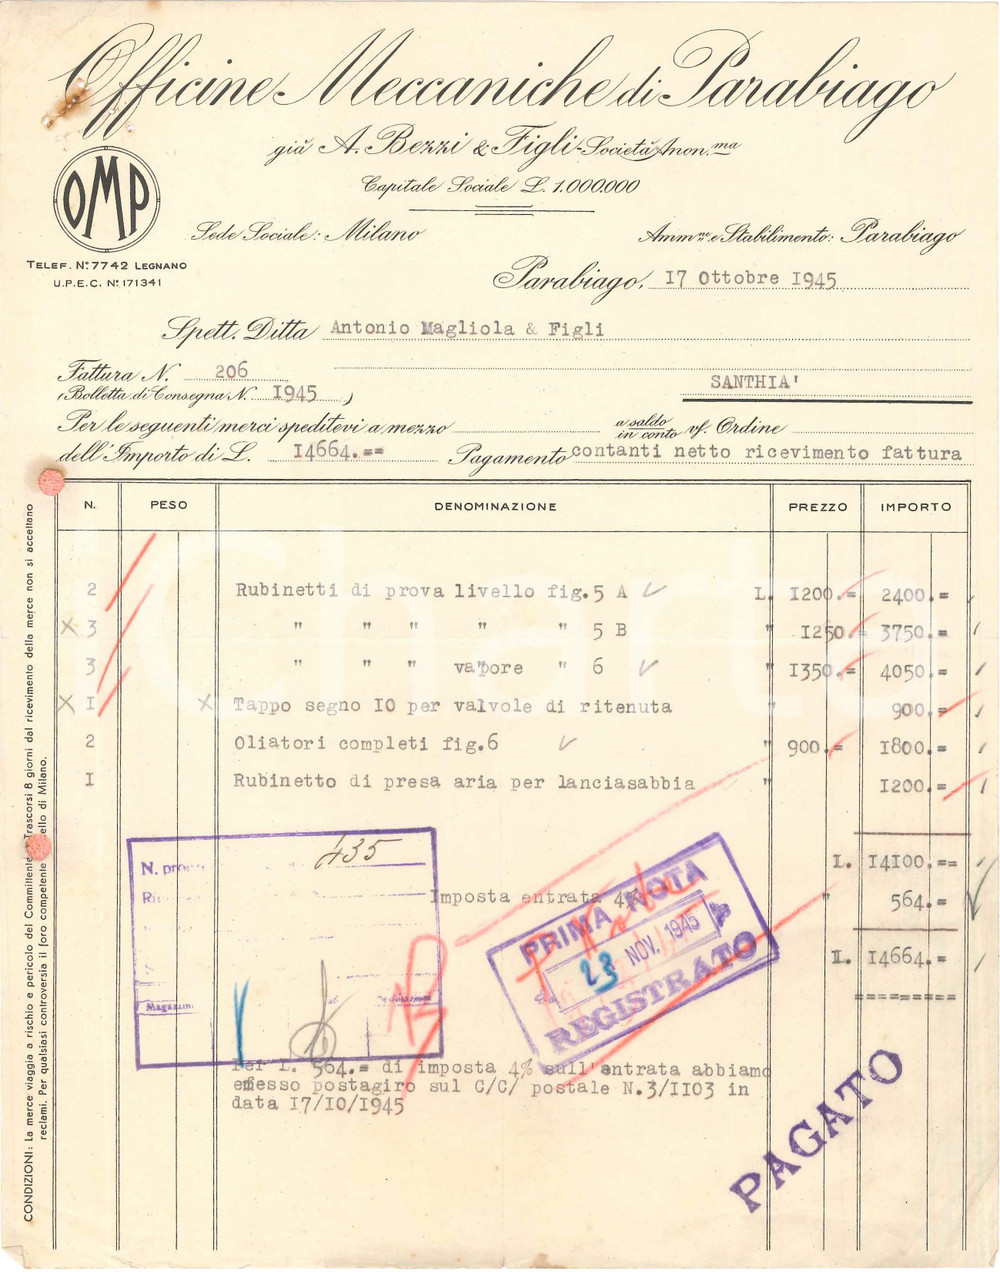 Officine Meccaniche di Parabiago
già A. Bezzi & Figli - Società Anon.ma
Capitale Sociale L. 1.000.000
OMP
Sede Sociale: Milano
Amm.ne e Stabilimento: Parabiago
TELEF. N.° 7742 LEGNANO
U.P.E.C. N.° 171341
Parabiago, 17 Ottobre 1945
Spett. Ditta Antonio Magliola & Figli
Fattura N. 206
(Bolletta di Consegna N. 1945)
SANTHIA'
Per le seguenti merci speditevi a mezzo a saldo in conto vs. Ordine
dell'Importo di L. 14664.== Pagamento contanti netto ricevimento fattura
N. PESO DENOMINAZIONE PREZZO IMPORTO
2 Rubinetti di prova livello fig. 5 A L. 1200.= 2400.=
3 " " " " " 5 B " 1250.= 3750.=
3 " " " vapore " 6 " 1350.= 4050.=
1 Tappo segno 10 per valvole di ritenuta " 900.=
2 Oliatori completi fig.6 " 900.= 1800.=
1 Rubinetto di presa aria per lanciasabbia " 1200.=
L. 14100.==
Imposta entrata 4% " 564.=
L. 14664.=
=========
N. 435
Magazzin
PRIMA NOTA
23 NOV. 1945
REGISTRATO
Per L. 564.= di imposta 4% sull'entrata abbiamo
emesso postagiro sul C/C/ postale N.3/1103 in
data 17/10/1945
PAGATO
CONDIZIONI: La merce viaggia a rischio e pericolo del Committente. Trascorsi 8 giorni dal ricevimento della merce non si accettano
reclami. Per qualsiasi controversia il foro competente ello di Milano.
Charta